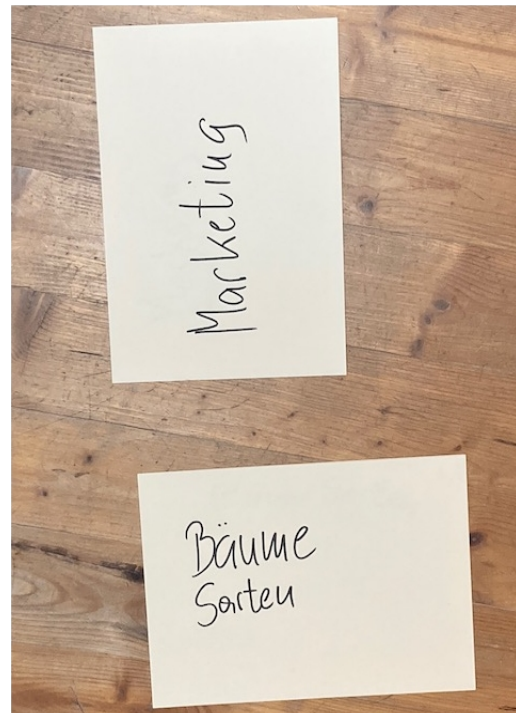 Marketing
Bäume
Sorten